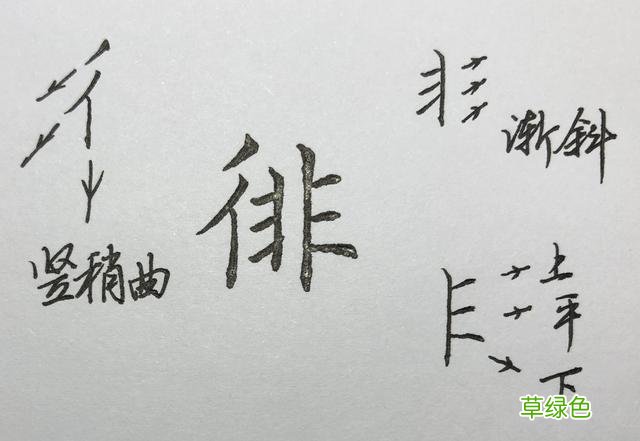 渐斜
徘
竖稍曲
上
平
下
草绿色